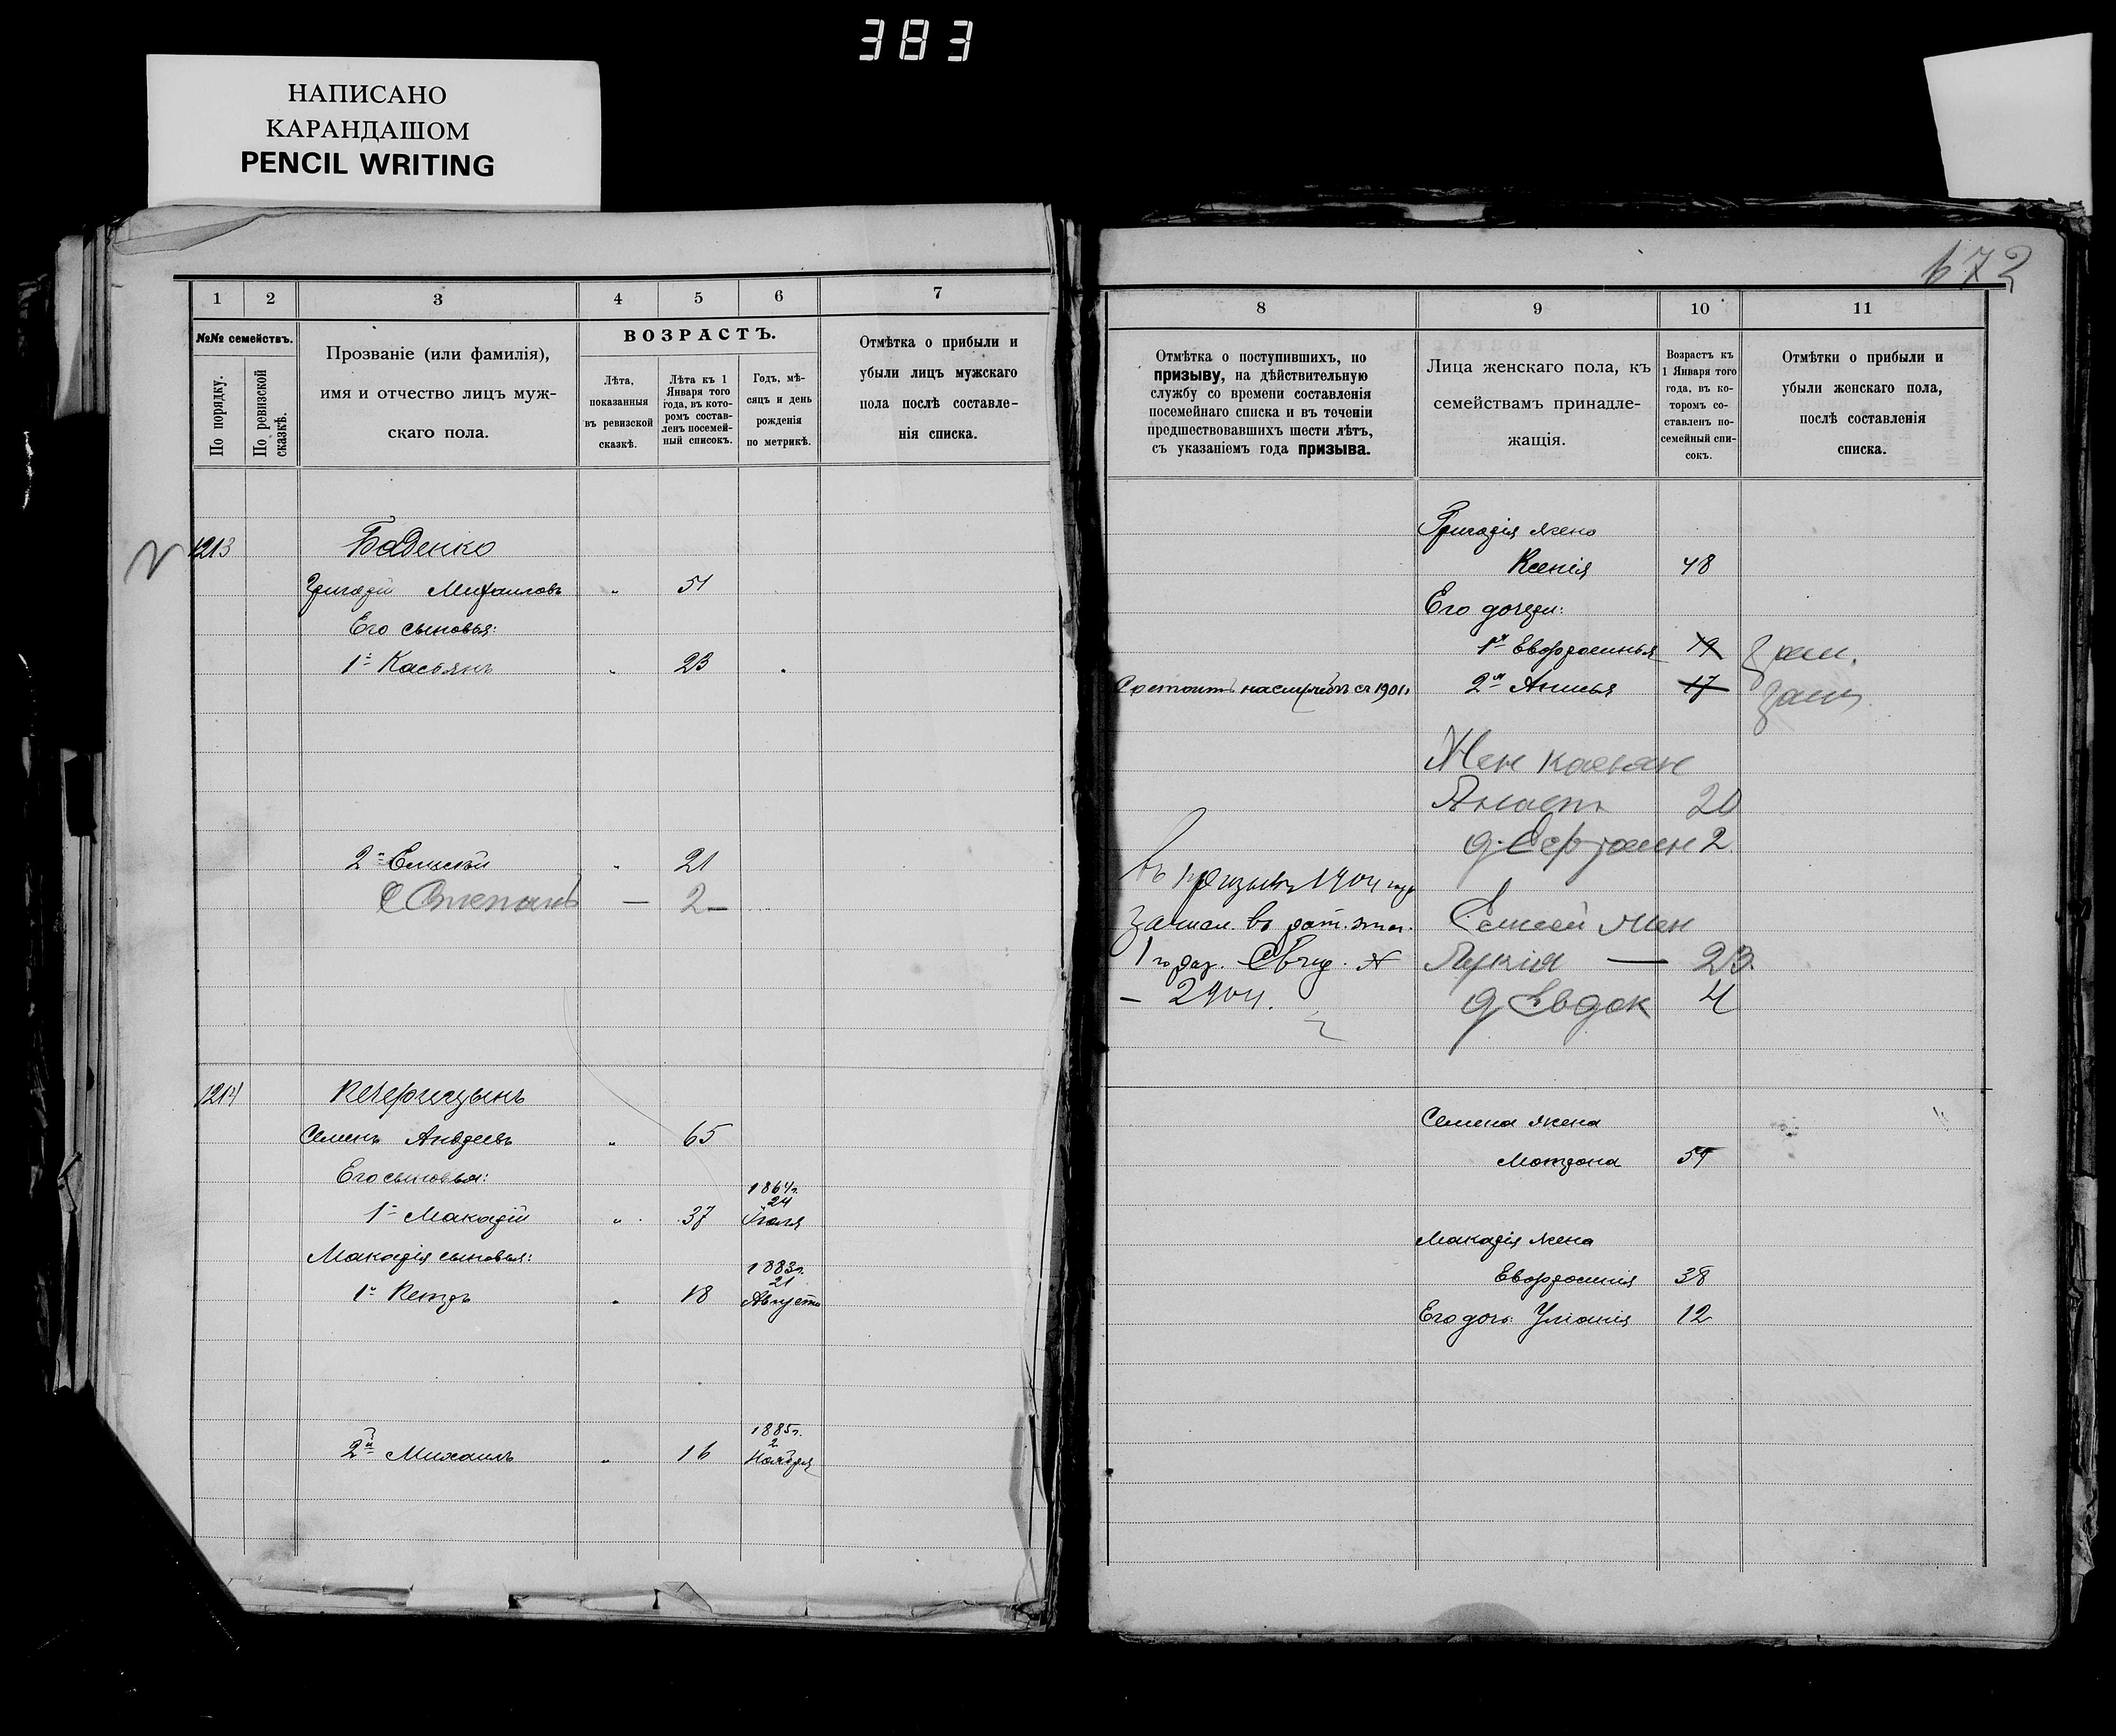 383
НАПИСАНО
КАРАНДАШОМ
PENCIL WRITING
672
1
2
3
4
5
6
7
№№ семействъ.
По порядку.
По ревизской сказкѣ.
Прозваніе (или фамилія),
имя и отчество лицъ муж-
скаго пола.
ВОЗРАСТЪ.
Лѣта,
показанныя
въ ревизской
сказкѣ.
Лѣта къ 1
Января того
года, въ кото-
ромъ состав-
ленъ посемей-
ный списокъ.
Годъ, мѣ-
сяцъ и день
рожденія
по метрикѣ.
Отмѣтка о прибыли и
убыли лицъ мужскаго
пола послѣ составле-
нія списка.
1213
Баденко
Григорій Михаиловъ " 51
Его сыновья:
1й Касьянъ " 23
2й Елисей " 21
С Степанъ — 2 —
1214
Семенъ Авдеевъ " 65
Его сыновья:
1й Макарій " 37 1864г. 24 Іюля
Макарія сыновья:
1й Петръ " 18 1883г. 21 Августа
2й Михаилъ " 16 1885г. 2 Ноября
8
9
10
11
Отмѣтка о поступившихъ, по
призыву, на дѣйствительную
службу со времени составленія
посемейнаго списка и въ теченіи
предшествовавшихъ шести лѣтъ,
съ указаніемъ года призыва.
Лица женскаго пола, къ
семействамъ принадле-
жащія.
Возрастъ къ
1 Января того
года, въ ко-
торомъ со-
ставленъ по-
семейный спи-
сокъ.
Отмѣтки о прибыли и
убыли женскаго пола,
послѣ составленія
списка.
Григорія жена
Ксенія 48
Его дочери:
1я Евфросинья 19 зам.
Состоитъ на службѣ съ 1901г. 2я Анисья 17 зам.
Жен Касьян
Анаст 20
д. Ефросин 2
Въ призывъ 1904 году
Зачисл. въ рат. опол.
1го раз. Свид. №
— 2904.
Елисей жен
Лукія — 23.
д Евдок 4
Семена жена
Матрона 59
Макарія жена
Евфросинія 38
Его дочь Уліанія 12